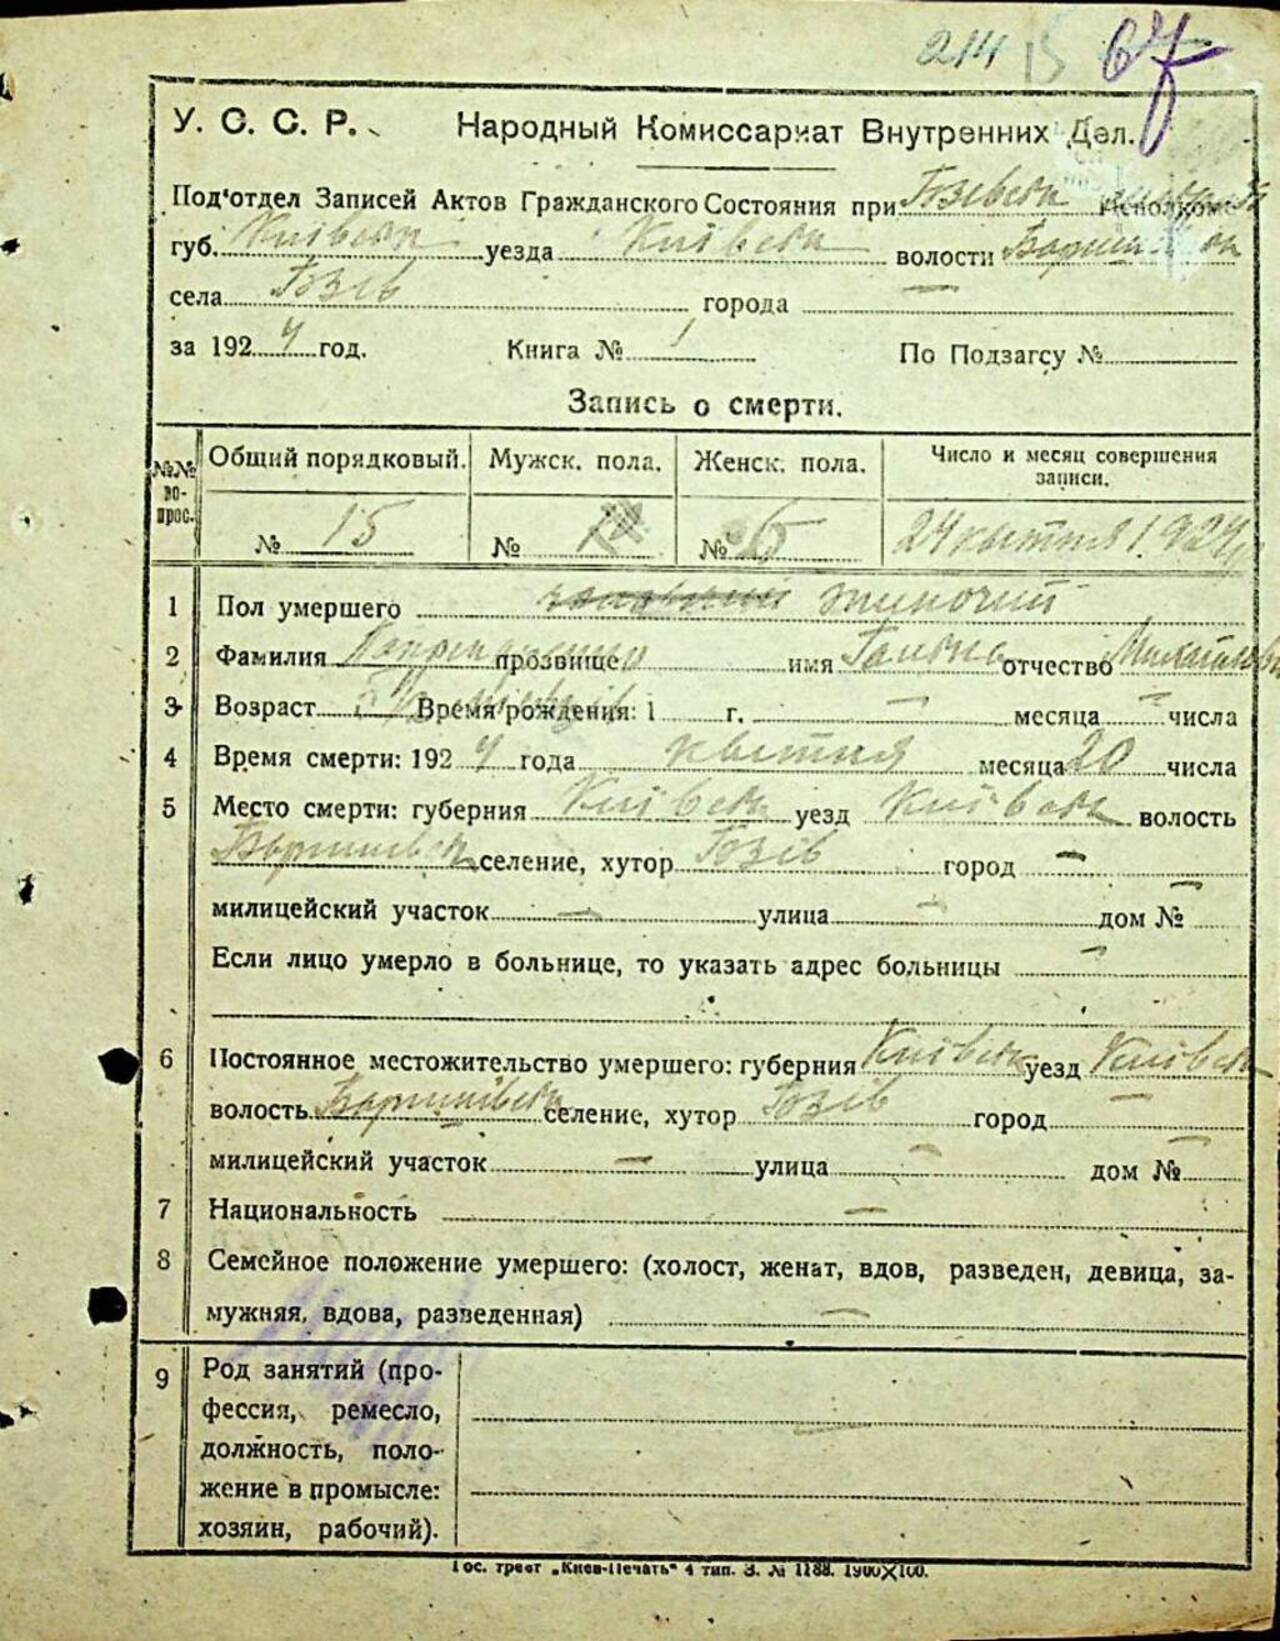 214 15 67
У. С. С. Р. Народный Комиссариат Внутренних Дел.
Под‘отдел Записей Актов Гражданского Состояния при Исполкоме
губ. Київськ уезда Київськ волости
села Бзів города —
за 1924 год. Книга № 1 По Подзагсу №
Запись о смерти.
№№ вопрос. Общий порядковый. Мужск. пола. Женск. пола. Число и месяц совершения записи.
№ 15 № № 6 24 квітня 1924
1 Пол умершего жиночий
2 Фамилия прозвище имя отчество
3 Возраст Время рождения: 1 г. — месяца — числа
4 Время смерти: 1924 года квітня месяца 20 числа
5 Место смерти: губерния Київськ уезд Київськ волость
селение, хутор Бзів город —
милицейский участок — улица — дом № —
Если лицо умерло в больнице, то указать адрес больницы —
6 Постоянное местожительство умершего: губерния Київськ уезд Київськ
волость Баришівськ селение, хутор Бзів город —
милицейский участок — улица — дом № —
7 Национальность —
8 Семейное положение умершего: (холост, женат, вдов, разведен, девица, за-
мужняя, вдова, разведенная) —
9 Род занятий (про-
фессия, ремесло,
должность, поло-
жение в промысле:
хозяин, рабочий).
Гос. трест „Киев-Печать“ 4 тип. З. № 1188. 1900×100.